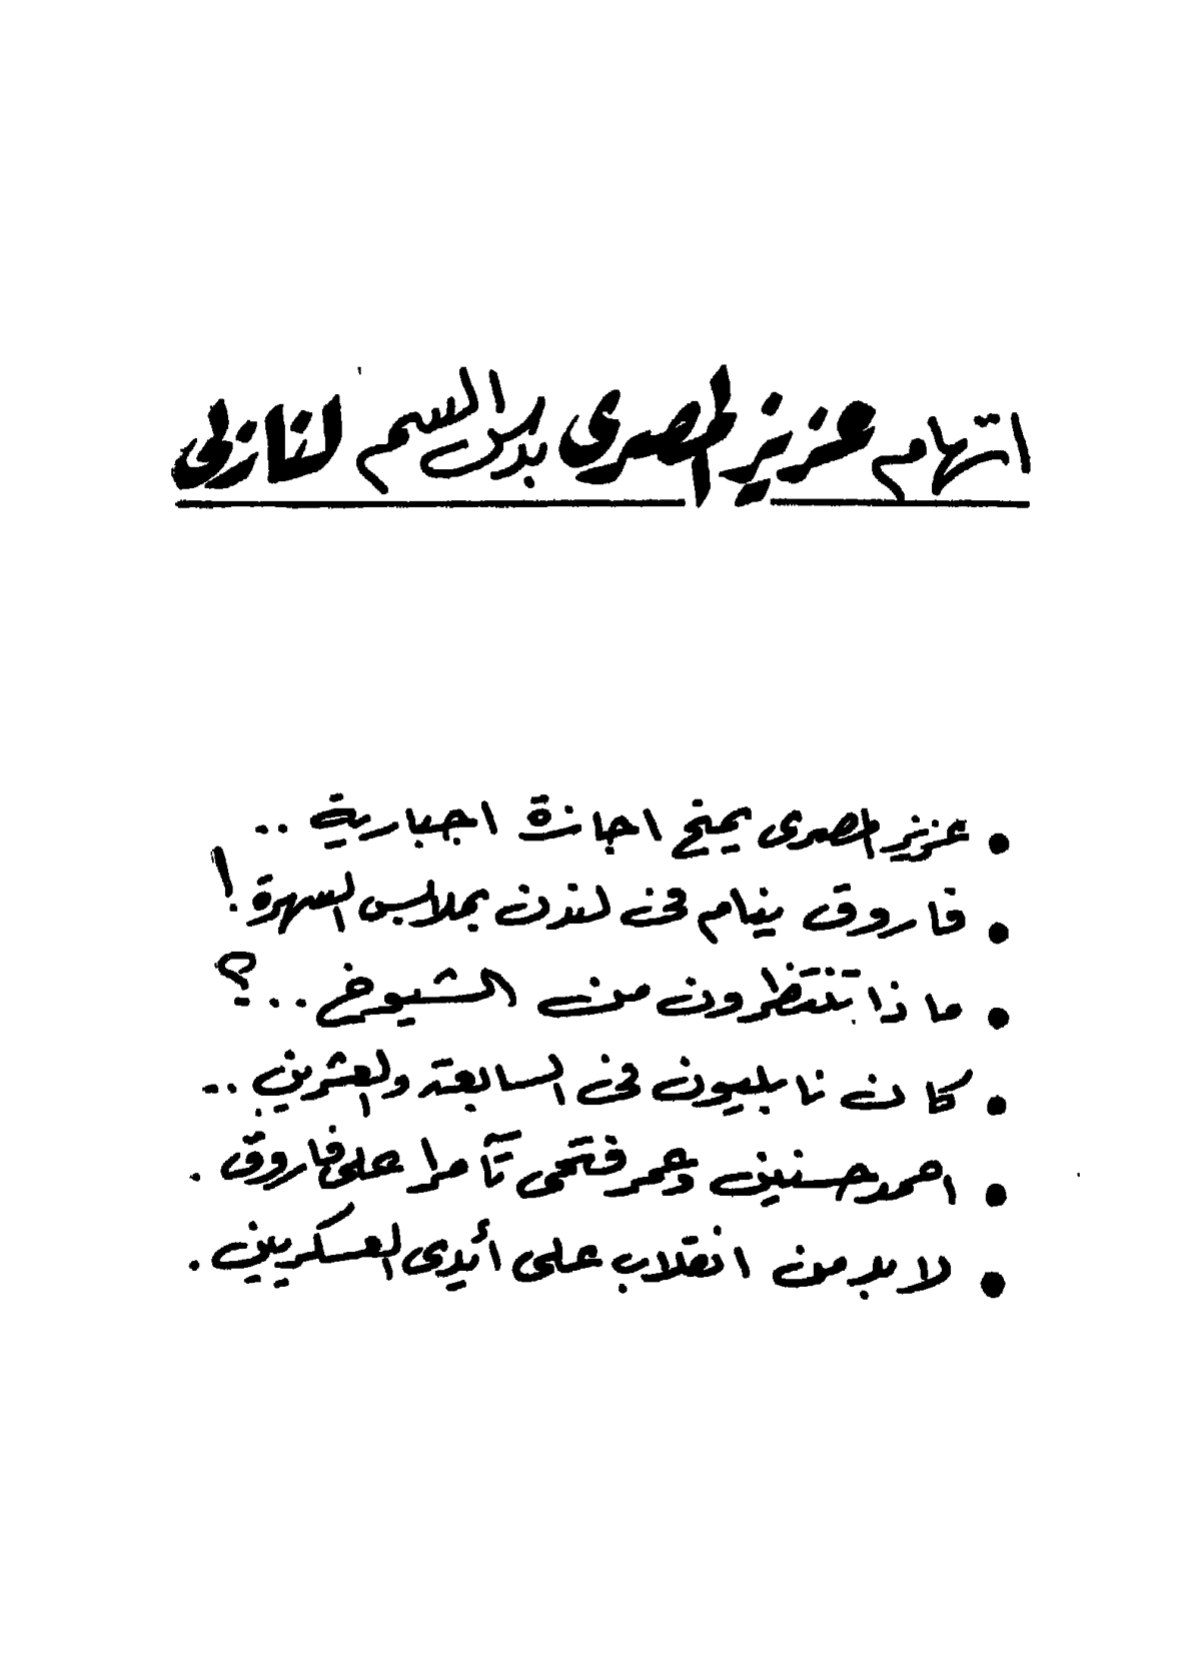 اتهام عزيز المصرى بدس السم لنازلى
• عزيز المصرى يمنح اجازة اجبارية ..
• فاروق ينام فى لندن بملابس السهرة !
• ماذا تنتظرون من الشيوخ .. ؟
• كان نابليون فى السابعة والعشرين ..
• احمد حسنين وعمر فتحى تآمرا على فاروق .
• لا بد من انقلاب على أيدى العسكريين .